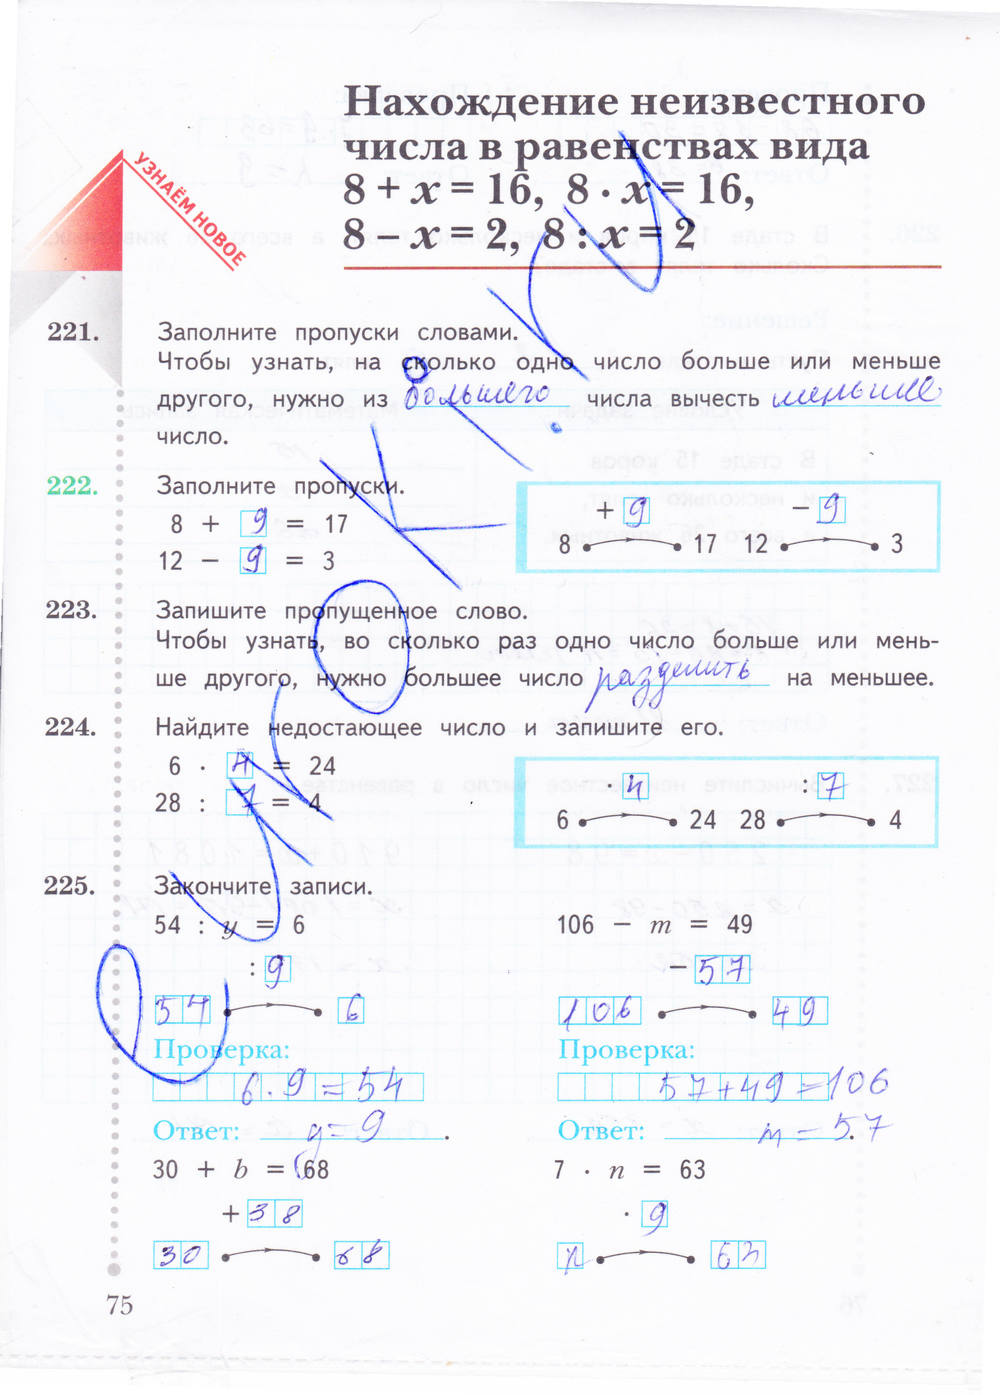 Нахождение неизвестного
числа в равенствах вида
8 + x = 16, 8 · x = 16,
8 - x = 2, 8 : x = 2
УЗНАЁМ НОВОЕ
221. Заполните пропуски словами.
Чтобы узнать, на сколько одно число больше или меньше
другого, нужно из большего числа вычесть меньшее
число.
222. Заполните пропуски.
8 + 9 = 17
12 − 9 = 3
+ 9 − 9
8 17 12 3
223. Запишите пропущенное слово.
Чтобы узнать, во сколько раз одно число больше или мень-
ше другого, нужно большее число разделить на меньшее.
224. Найдите недостающее число и запишите его.
6 · 4 = 24
28 : 7 = 4
· 4 : 7
6 24 28 4
225. Закончите записи.
54 : y = 6 106 − m = 49
: 9 − 57
54 6 106 49
Проверка: Проверка:
6 · 9 = 54 57+49=106
Ответ: y = 9 . Ответ: m = 57 .
30 + b = 68 7 · n = 63
+ 38 · 9
30 68 63
75
e-uroki.ru